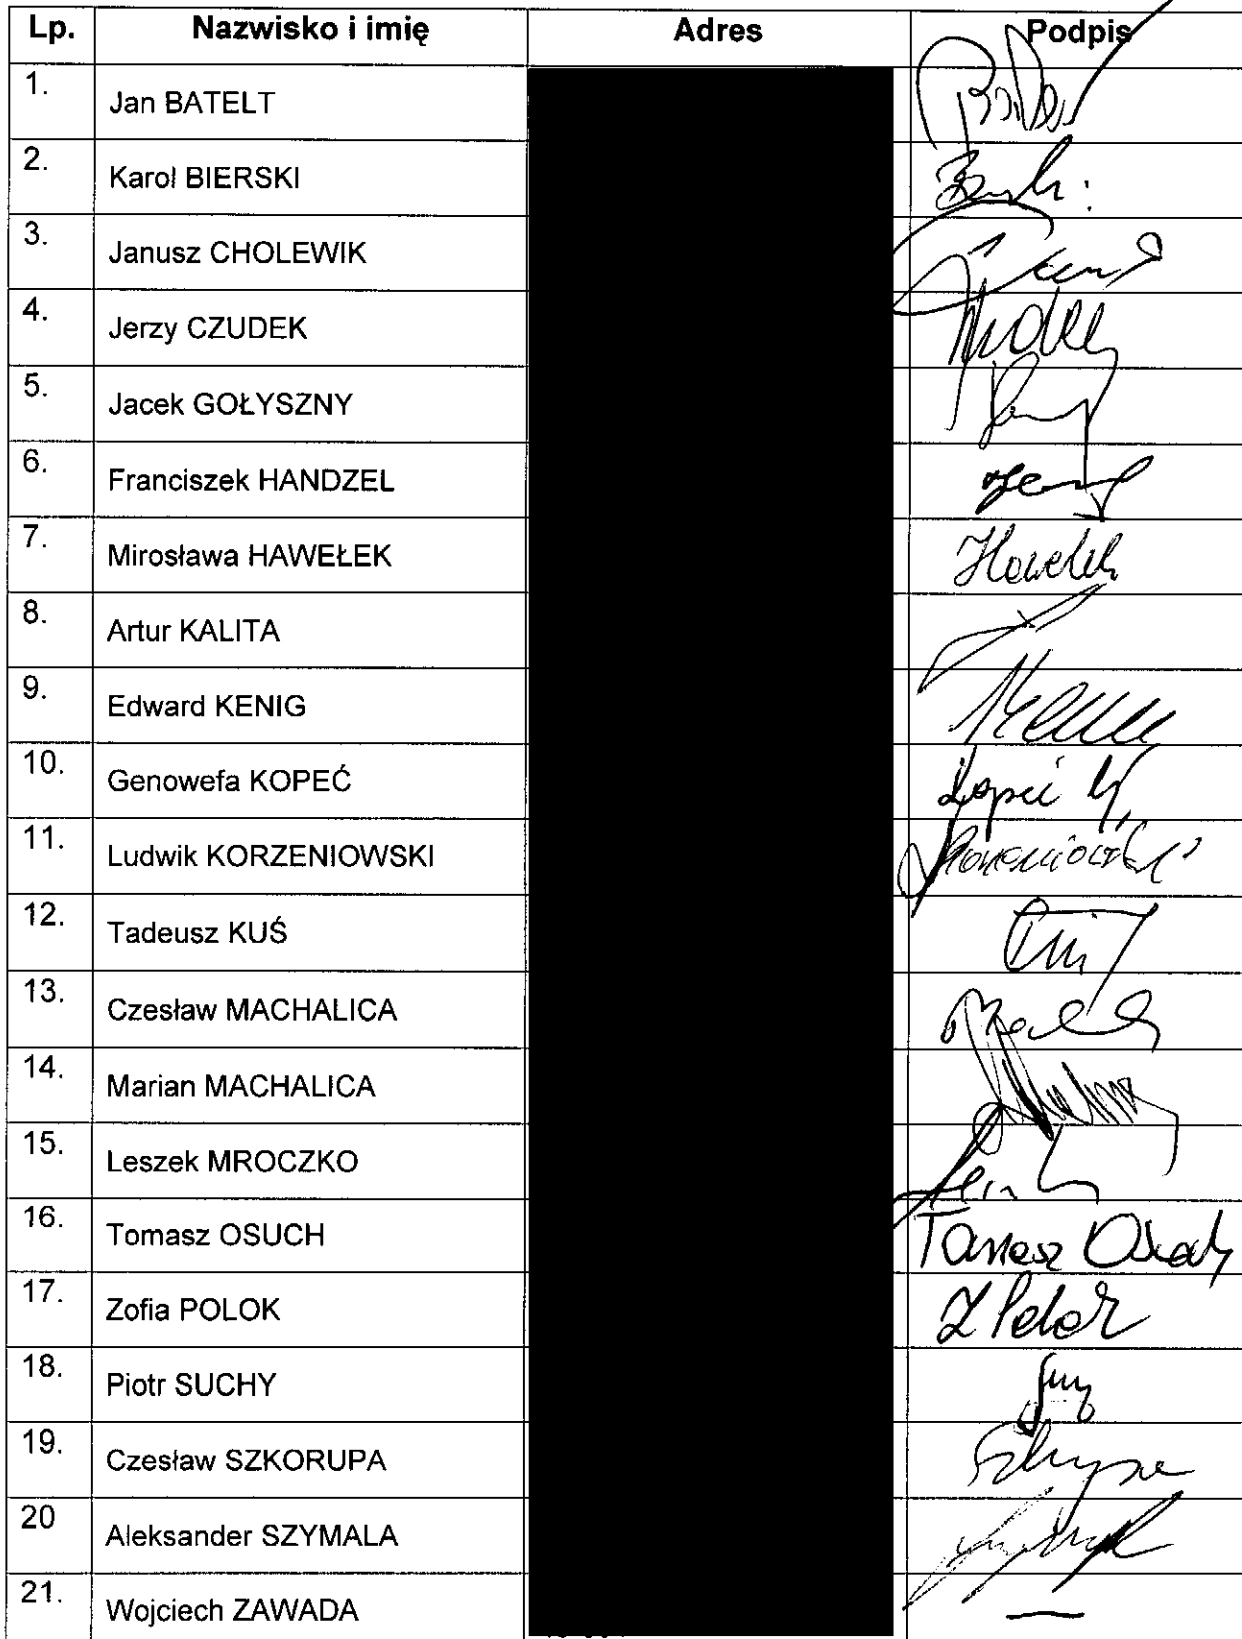 Lp. Nazwisko i imię Adres Podpis
1. Jan BATELT
2. Karol BIERSKI
3. Janusz CHOLEWIK
4. Jerzy CZUDEK
5. Jacek GOŁYSZNY
6. Franciszek HANDZEL
7. Mirosława HAWEŁEK Hawełek
8. Artur KALITA
9. Edward KENIG
10. Genowefa KOPEĆ Kopeć G,
11. Ludwik KORZENIOWSKI
12. Tadeusz KUŚ
13. Czesław MACHALICA
14. Marian MACHALICA
15. Leszek MROCZKO
16. Tomasz OSUCH Tomasz Osuch
17. Zofia POLOK Z Polok
18. Piotr SUCHY
19. Czesław SZKORUPA
20 Aleksander SZYMALA
21. Wojciech ZAWADA —